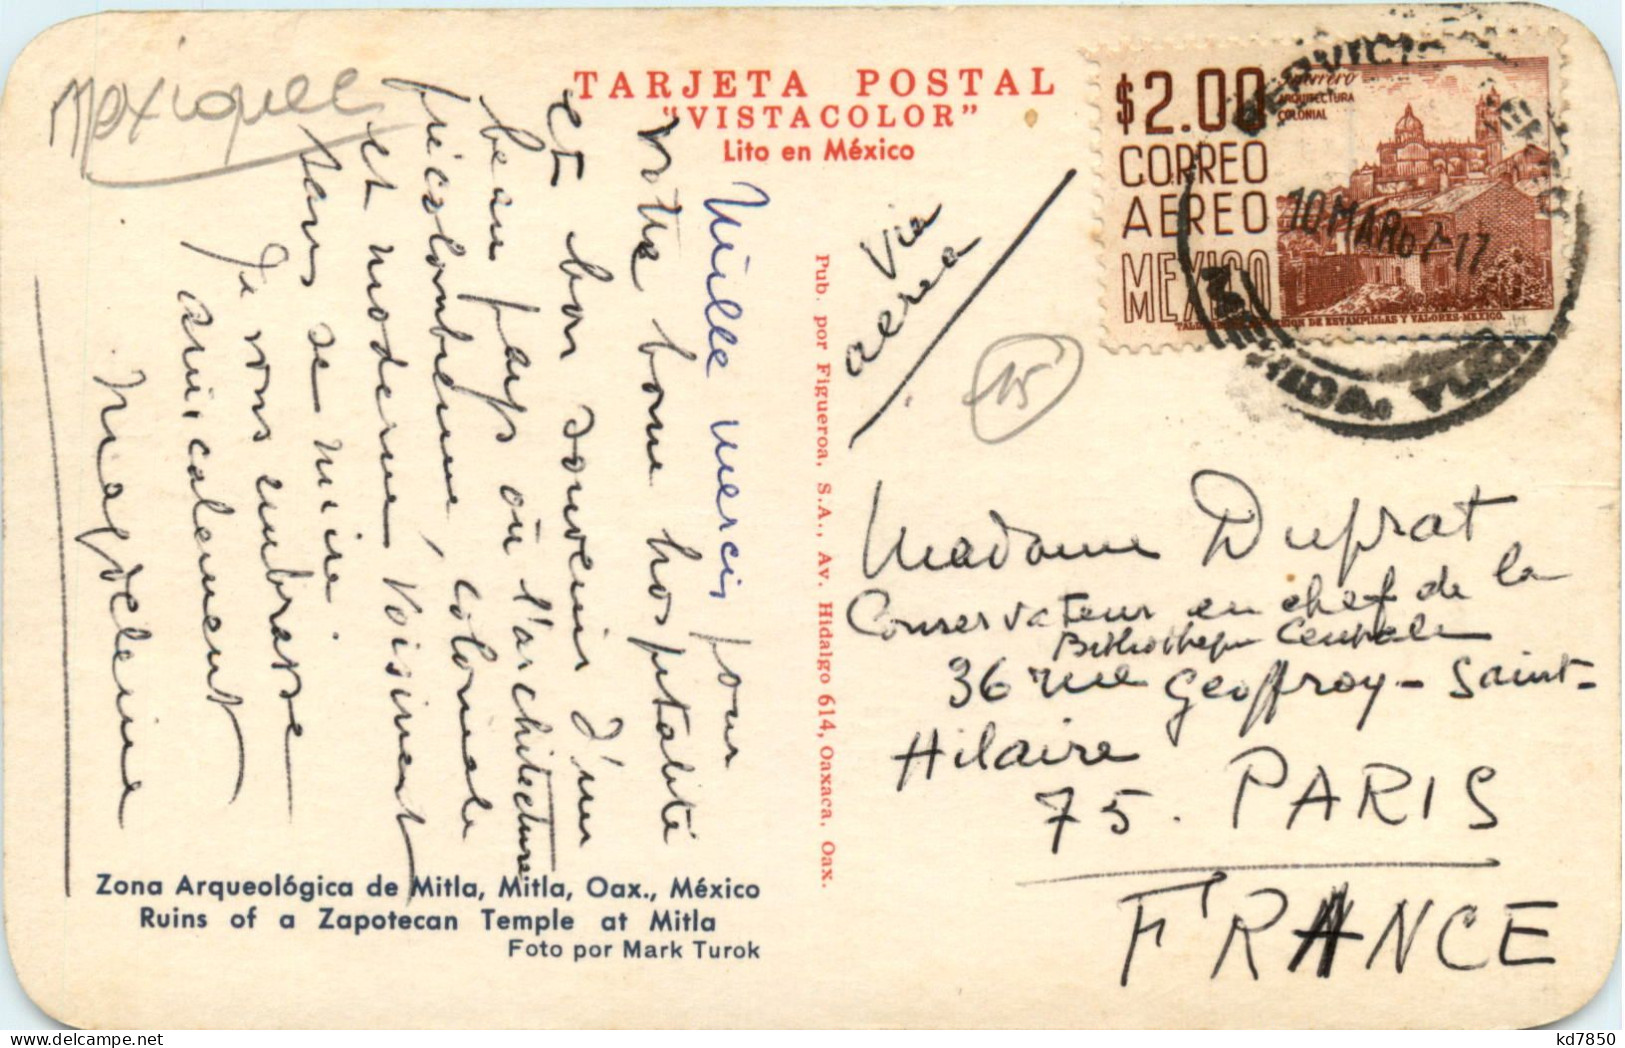 Mexique
TARJETA POSTAL
"VISTACOLOR"
Lito en México
Mille mercis pour
votre bonne hospitalité
et bon souvenir d'un
beau pays où l'architecture
précolombienne, coloniale
et moderne voisinent
sans se nuire.
Je vous embrasse
amicalement
Magdeleine
Zona Arqueológica de Mitla, Mitla, Oax., México
Ruins of a Zapotecan Temple at Mitla
Foto por Mark Turok
Pub. por Figueroa, S.A., Av. Hidalgo 614, Oaxaca, Oax.
Via
aerea
15
$2.00
CORREO
AEREO
MEXICO
Guerrero
ARQUITECTURA
COLONIAL
DE ESTAMPILLAS Y VALORES-MEXICO.
10 MAR 67-17
MERIDA, YUC.
Madame Duprat
Conservateur en chef de la
Bibliothèque Centrale
36 rue Geoffroy-Saint-
Hilaire
75. PARIS
FRANCE
kd7850